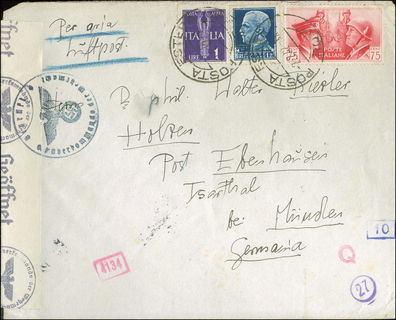 Per aria
Luftpost.
POSTA AEREA
ITALIA
LIRE 1
POSTE
ITALIANE
75
POSTA
POSTA
Geöffnet
Oberkommando der Wehrmacht
Dr. phil. Walter Riezler
Holzen
Post Ebenhausen
Isarthal
bei München
Germania
4134
Q
10
27